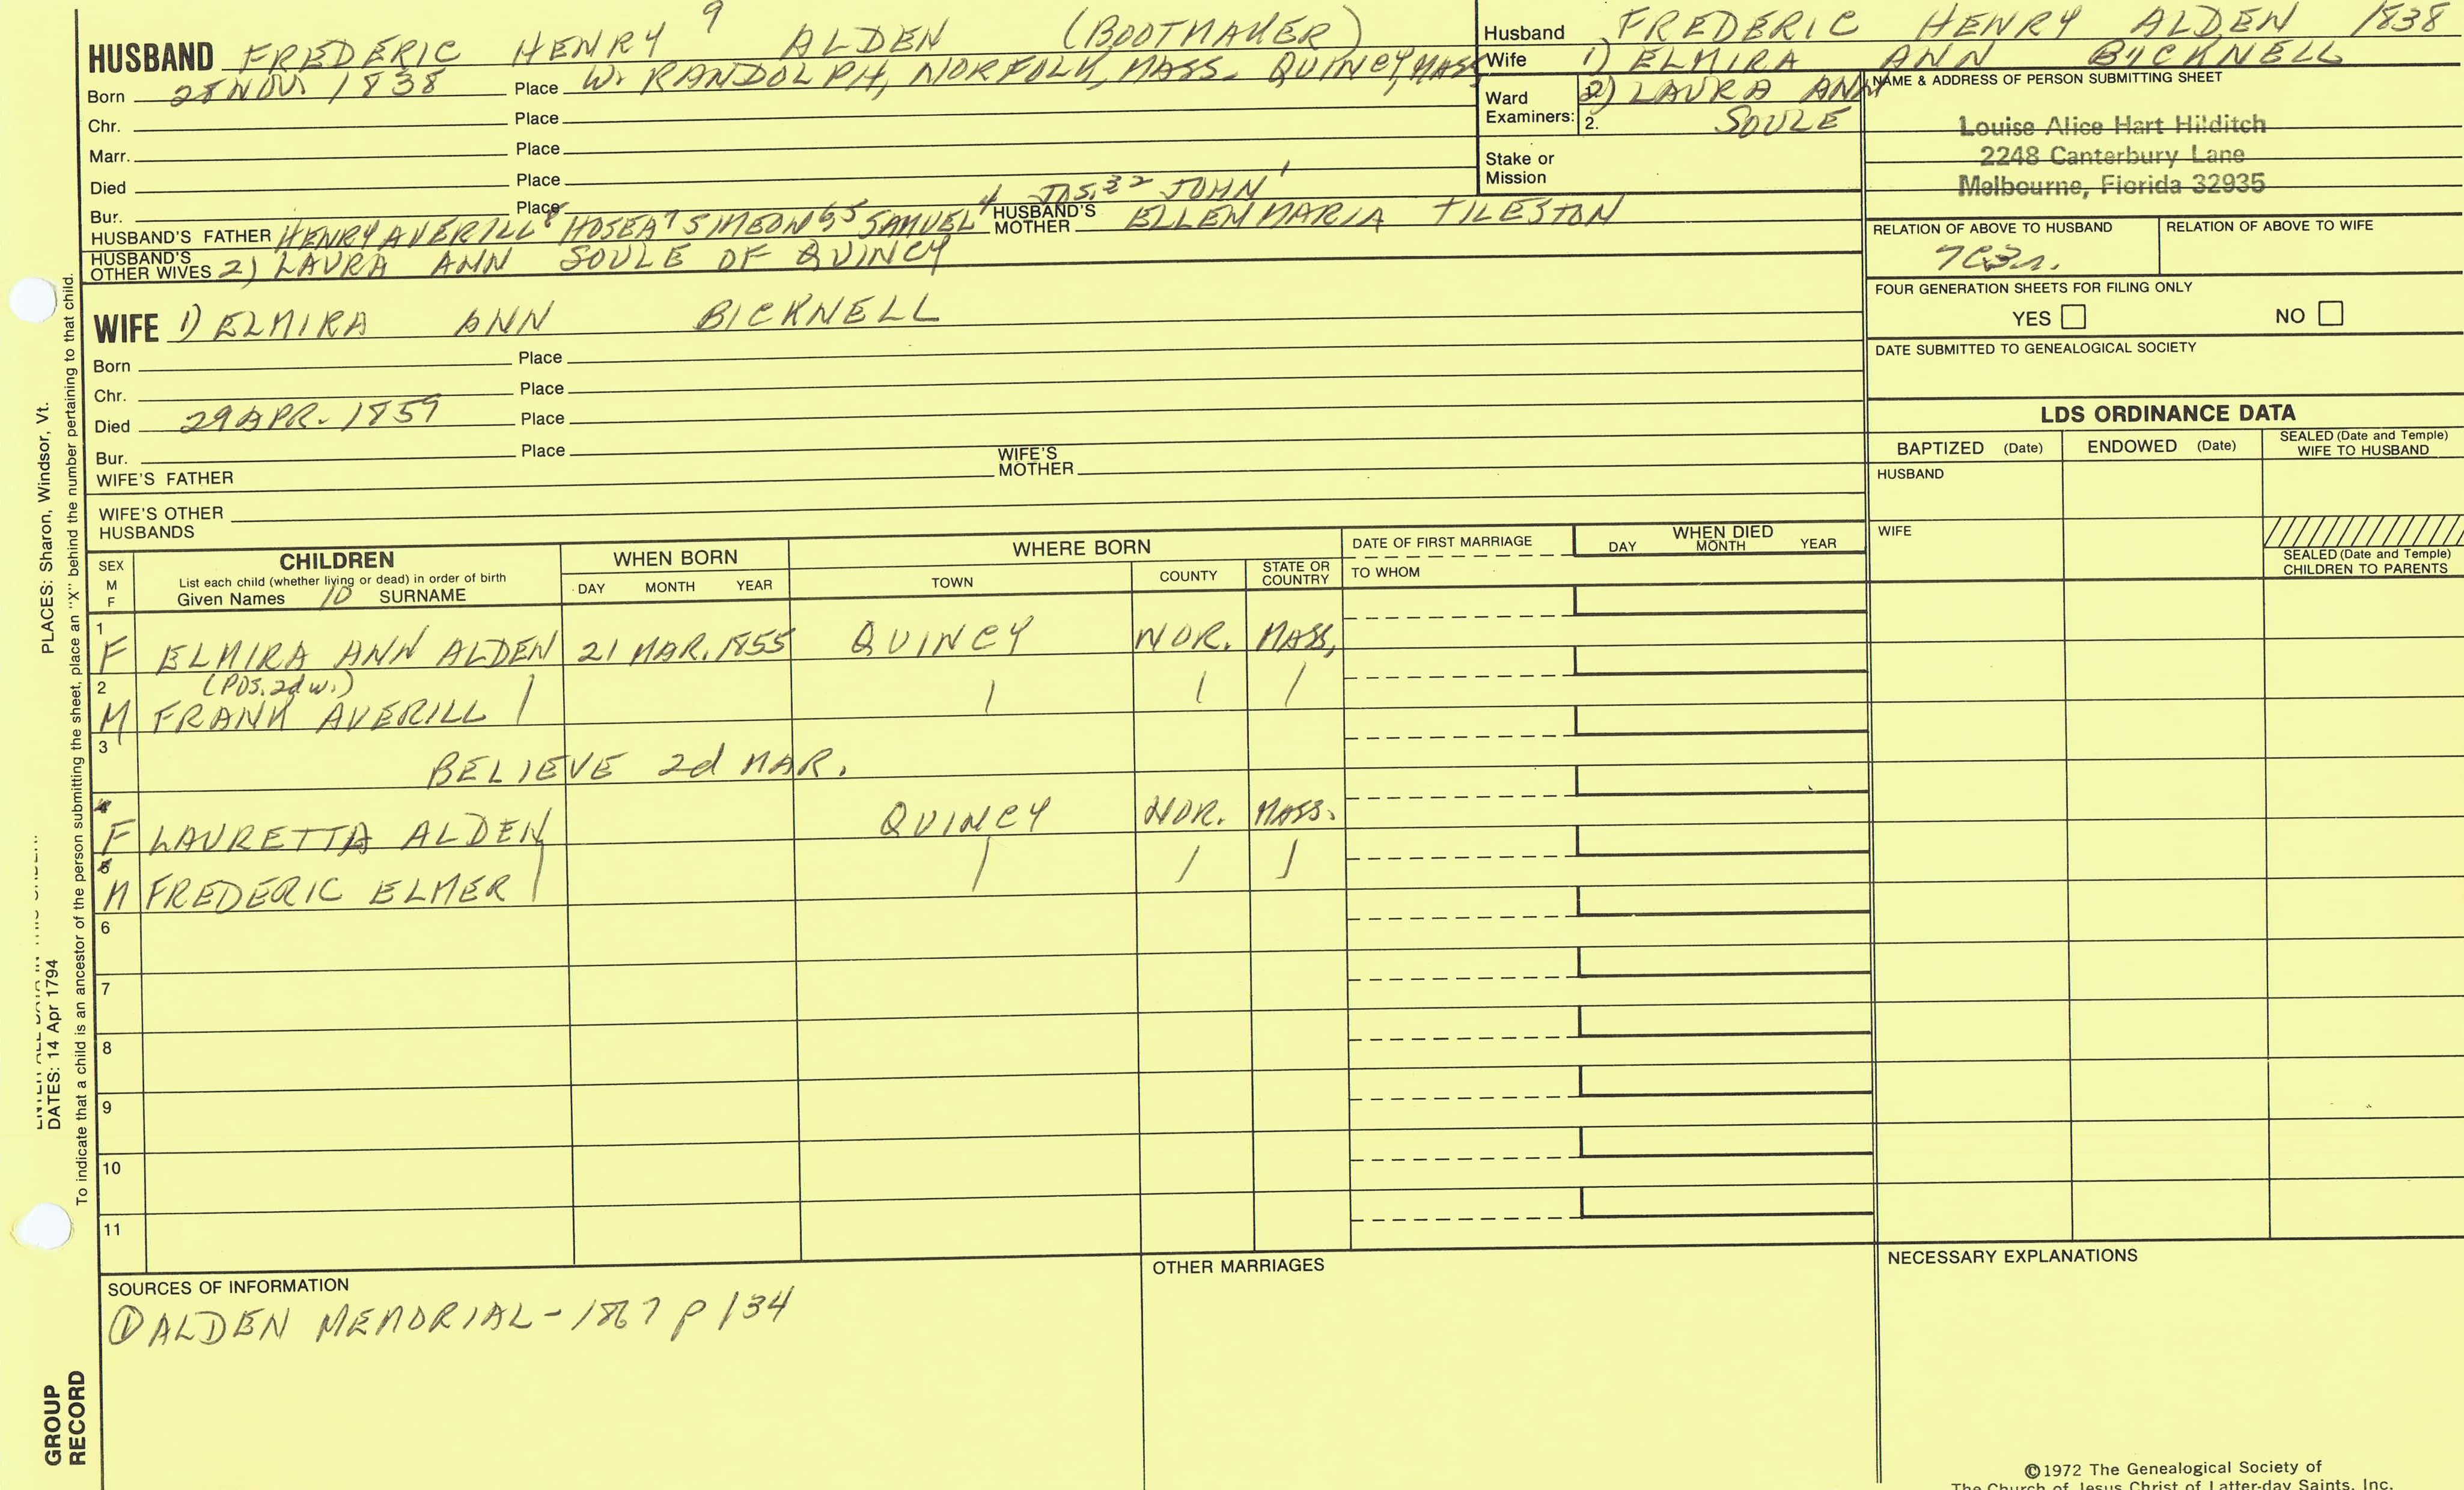 HUSBAND FREDERIC HENRY 9 ALDEN (BOOTMAKER)
Born 28 NOV 1838 Place W. RANDOLPH, NORFOLK, MASS. QUINCY, MASS
Chr. Place
Marr. Place
Died Place
Bur. Place
HUSBAND'S FATHER HENRY AVERILL 8 HOSEA 7 SIMEON 6 5 SAMUEL 4 JOS. 3 2 JOHN 1 HUSBAND'S MOTHER ELLEN MARIA TILESTON
HUSBAND'S OTHER WIVES 2) LAURA ANN SOULE OF QUINCY
Husband FREDERIC HENRY ALDEN 1838
Wife 1) ELMIRA ANN BICKNELL
Ward Examiners: 2) LAURA ANN
2. SOULE
Stake or Mission
NAME & ADDRESS OF PERSON SUBMITTING SHEET
Louise Alice Hart Hilditch
2248 Canterbury Lane
Melbourne, Florida 32935
RELATION OF ABOVE TO HUSBAND RELATION OF ABOVE TO WIFE
FOUR GENERATION SHEETS FOR FILING ONLY
YES NO
DATE SUBMITTED TO GENEALOGICAL SOCIETY
WIFE 1) ELMIRA ANN BICKNELL
Born Place
Chr. Place
Died 29 APR. 1859 Place
Bur. Place
WIFE'S FATHER WIFE'S MOTHER
WIFE'S OTHER HUSBANDS
LDS ORDINANCE DATA
BAPTIZED (Date) ENDOWED (Date) SEALED (Date and Temple) WIFE TO HUSBAND
HUSBAND
WIFE
SEALED (Date and Temple) CHILDREN TO PARENTS
SEX M F CHILDREN WHEN BORN WHERE BORN DATE OF FIRST MARRIAGE WHEN DIED
List each child (whether living or dead) in order of birth
Given Names 10 SURNAME DAY MONTH YEAR TOWN COUNTY STATE OR COUNTRY TO WHOM DAY MONTH YEAR
1 F ELMIRA ANN ALDEN 21 MAR. 1855 QUINCY NOR. MASS.
2 (POS. 2d w.)
M FRANK AVERILL | | | |
3 BELIEVE 2d MAR.
4 F LAURETTA ALDEN QUINCY NOR. MASS.
5 M FREDERIC ELMER | | | |
6
7
8
9
10
11
SOURCES OF INFORMATION
① ALDEN MEMORIAL - 1867 p 134
OTHER MARRIAGES
NECESSARY EXPLANATIONS
©1972 The Genealogical Society of
The Church of Jesus Christ of Latter-day Saints, Inc.
PLACES: Sharon, Windsor, Vt.
DATES: 14 Apr 1794
To indicate that a child is an ancestor of the person submitting the sheet, place an "X" behind the number pertaining to that child.
GROUP
RECORD